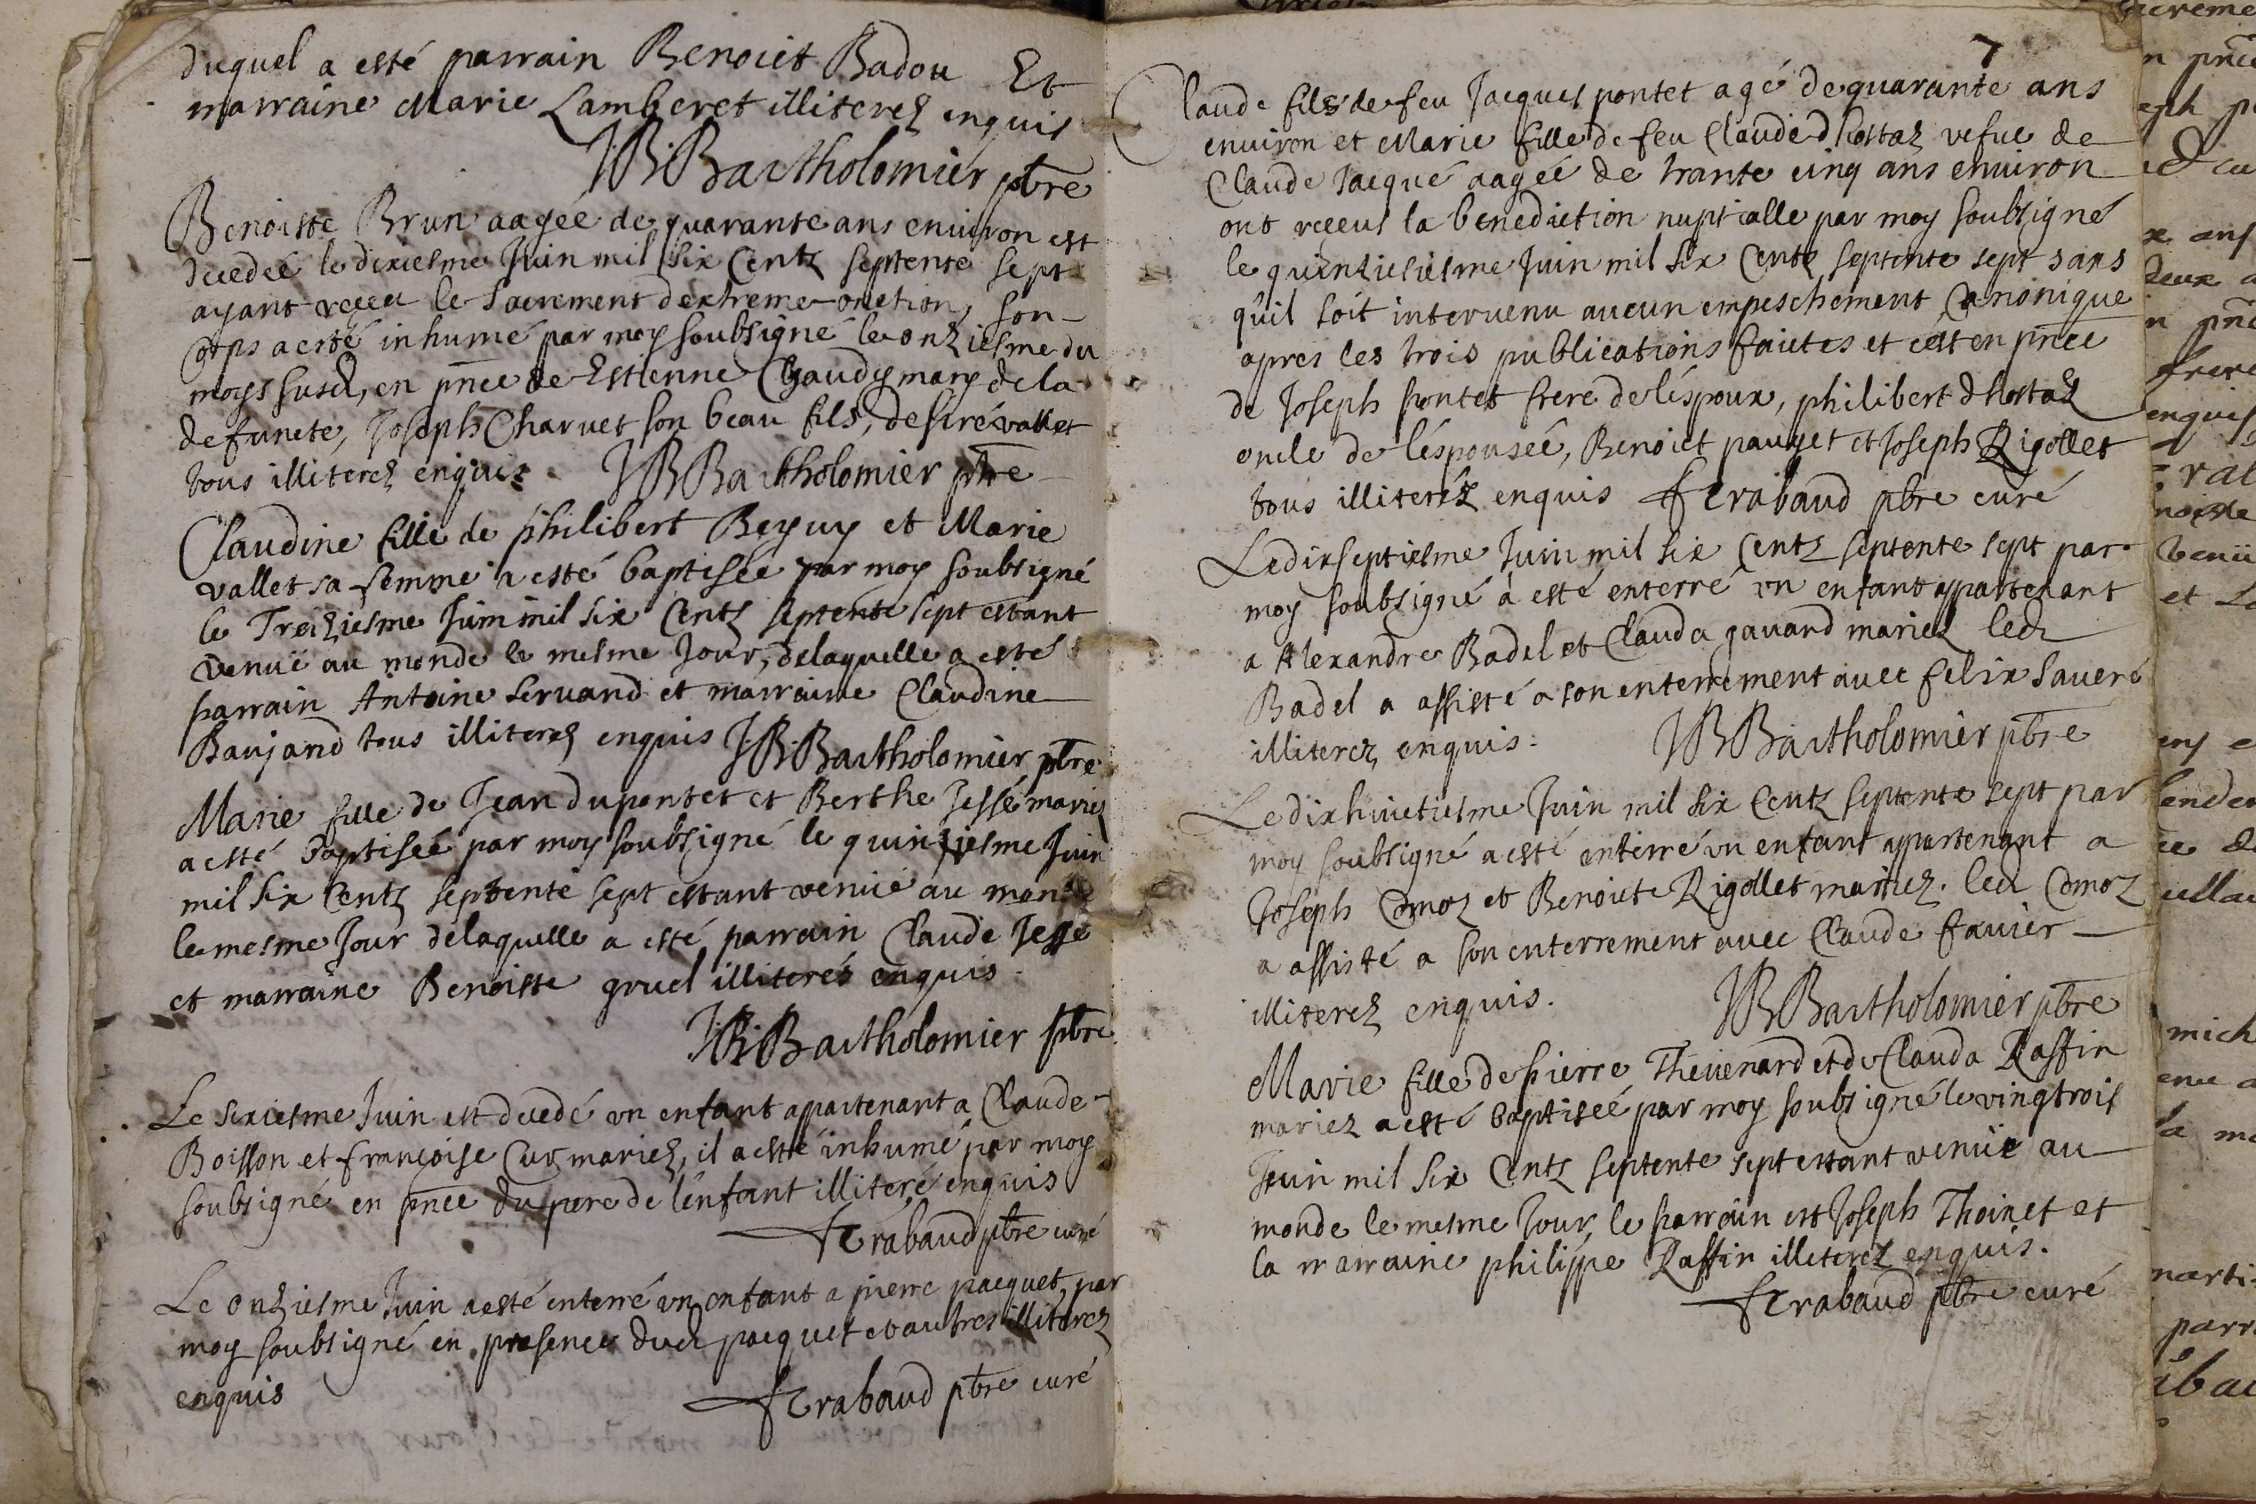 duquel a esté parrain Benoict Badou Et
marraine Marie Lamberet illiterez enquis
JB Bartholomier pbre
Benoiste Brun aagée de quarante ans environ est
decedeé le dixiesme Juin mil six Centz septente sept
ayant receu le Sacrement dextreme onction, son
corps a esté inhumé par moy soubsigné le onziesme du
moys susd, en pnce de Estienne Chaudy mary de la
defuncte, Joseph Charvet son beau fils, desiré vallet
tous illiterez enquis JB Bartholomier pbre
Claudine fille de philibert Beguy et Marie
vallet sa femme a esté baptisée par moy soubsigné
le Treiziesme Juin mil six Centz septente sept estant
venuë au monde le mesme Jour, delaquelle a esté
parrain Antoine servand et marraine Claudine
Baujand tous illiterez enquis JB Bartholomier pbre
Marie fille de Jean dupontet et Berthe Jessé mariez
a esté baptiseé par moy soubsigné le quinziesme Juin
mil six Centz septente sept estant venue au monde
le mesme Jour delaquelle a esté parrain Claude Jessé
et marraine Benoiste gruel illiterés enquis.
JB Bartholomier pbre
Le sixiesme Juin est decedé un enfant appartenant a Claude
Boisson et françoise Cuz mariez, il a esté inhumé par moy
soubsigné en pnce du pere de lénfant illiteré enquis
frabaud pbre curé
Le onziesme Juin a esté enterré un enfant a pierre pacquet, par
moy soubsigné en presence dud pacquet et autres illiterez
enquis frabaud pbre curé
7
Claude fils de feu Jacques pontet agé de quarante ans
environ et Marie fille de feu Claude dhostaz vefue de
Claude Jacqué aagée de trante cinq ans environ
ont receus la benediction nuptialle par moy soubsigné
le quinziesiesme Juin mil six Centz septente sept sans
qu'il soit intervenu aucun empeschement Canonique
apres les trois publications faictes et cest en pnce
de Joseph pontet frere de léspoux, philibert dhostaz
oncle de léspouseé, Benoict pauget et Joseph Rigollet
tous illiteréz enquis frabaud pbre curé
Le dixseptiesme Juin mil six Centz septente sept par
moy soubsigné à esté enterré un enfant appartenant
a Alexandre Badel et Clauda gavard mariez led
Badel a assisté a son enterrement avec felix Saveré
illiterez enquis. JB Bartholomier pbre
Le dixhuictiesme Juin mil six Centz septente sept par
moy soubsigné a esté enterré un enfant appartenant a
Joseph Comoz et Benoicte Rigollet mariez. led Comoz
a assisté a son enterrement avec Claude favier
illiterez enquis. JB Bartholomier pbre
Marie fille de pierre Thevenard et de Clauda Raffin
mariez a esté baptiseé par moy soubsigné le vingtrois
Juin mil six Centz septente sept estant venüe au
monde le mesme Jour, le parrain est Joseph Thoinet et
la marraine philippe Raffin illiterez enquis.
frabaud pbre curé